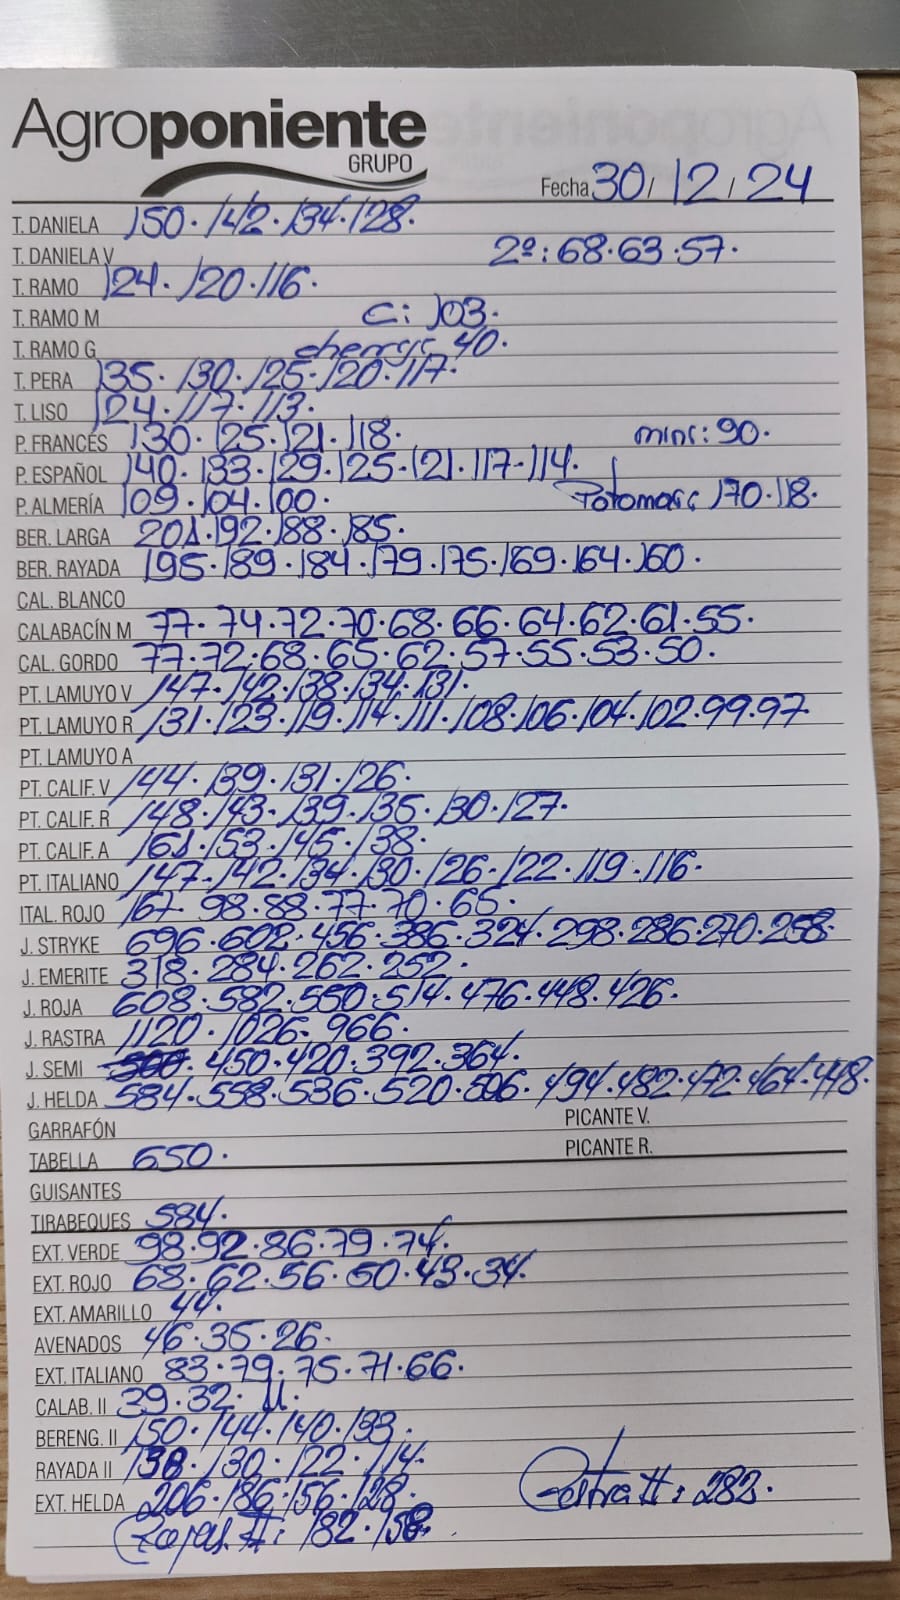 Agroponiente
GRUPO
Fecha 30/12/24
T. DANIELA 150. 142. 134. 128.
T. DANELA V 2º: 68. 63. 57.
T. RAMO 124. 120. 116.
T. RAMO M C: 103.
T. RAMO G cherrys 40.
T. PERA 135. 130. 125. 120. 117.
T. LISO 124. 117. 113.
P. FRANCÉS 130. 125. 121. 118. mini: 90.
P. ESPAÑOL 140. 133. 129. 125. 121. 117. 114.
P. ALMERÍA 109. 104. 100. 170. 118.
BER. LARGA 201. 192. 188. 185.
BER. RAYADA 195. 189. 184. 179. 175. 169. 164. 160.
CAL. BLANCO
CALABACÍN M 77. 74. 72. 70. 68. 66. 64. 62. 61. 55.
CAL. GORDO 77. 72. 68. 65. 62. 57. 55. 53. 50.
PT. LAMUYO V 147. 142. 138. 134. 131.
PT. LAMUYO R 131. 123. 119. 114. 111. 108. 106. 104. 102. 99. 97
PT. LAMUYO A
PT. CALIF. V 144. 139. 131. 126.
PT. CALIF. R 148. 143. 139. 135. 130. 127.
PT. CALIF. A 161. 153. 145. 138.
PT. ITALIANO 147. 142. 134. 130. 126. 122. 119. 116.
ITAL. ROJO 167. 98. 88. 77. 70. 65.
J. STRYKE 696. 602. 456. 386. 324. 298. 286. 270. 258.
J. EMERITE 318. 284. 262. 252.
J. ROJA 608. 582. 550. 514. 476. 448. 426.
J. RASTRA 1120. 1026. 966.
J. SEMI 450. 420. 392. 364.
J. HELDA 584. 558. 536. 520. 506. 494. 482. 472. 464. 448.
GARRAFÓN PICANTE V.
TABELLA 650. PICANTE R.
GUISANTES
TIRABEQUES 584.
EXT. VERDE 98. 92. 86. 79. 74.
EXT. ROJO 68. 62. 56. 50. 43. 34.
EXT. AMARILLO 44.
AVENADOS 46. 35. 26.
EXT. ITALIANO 83. 79. 75. 71. 66.
CALAB. II 39. 32. 11.
BERENG. II 150. 144. 140. 133.
RAYADA II 138. 130. 122. 114.
EXT. HELDA 206. 186. 156. 128. Rastra II: 282.
Rojas II: 182. 158.